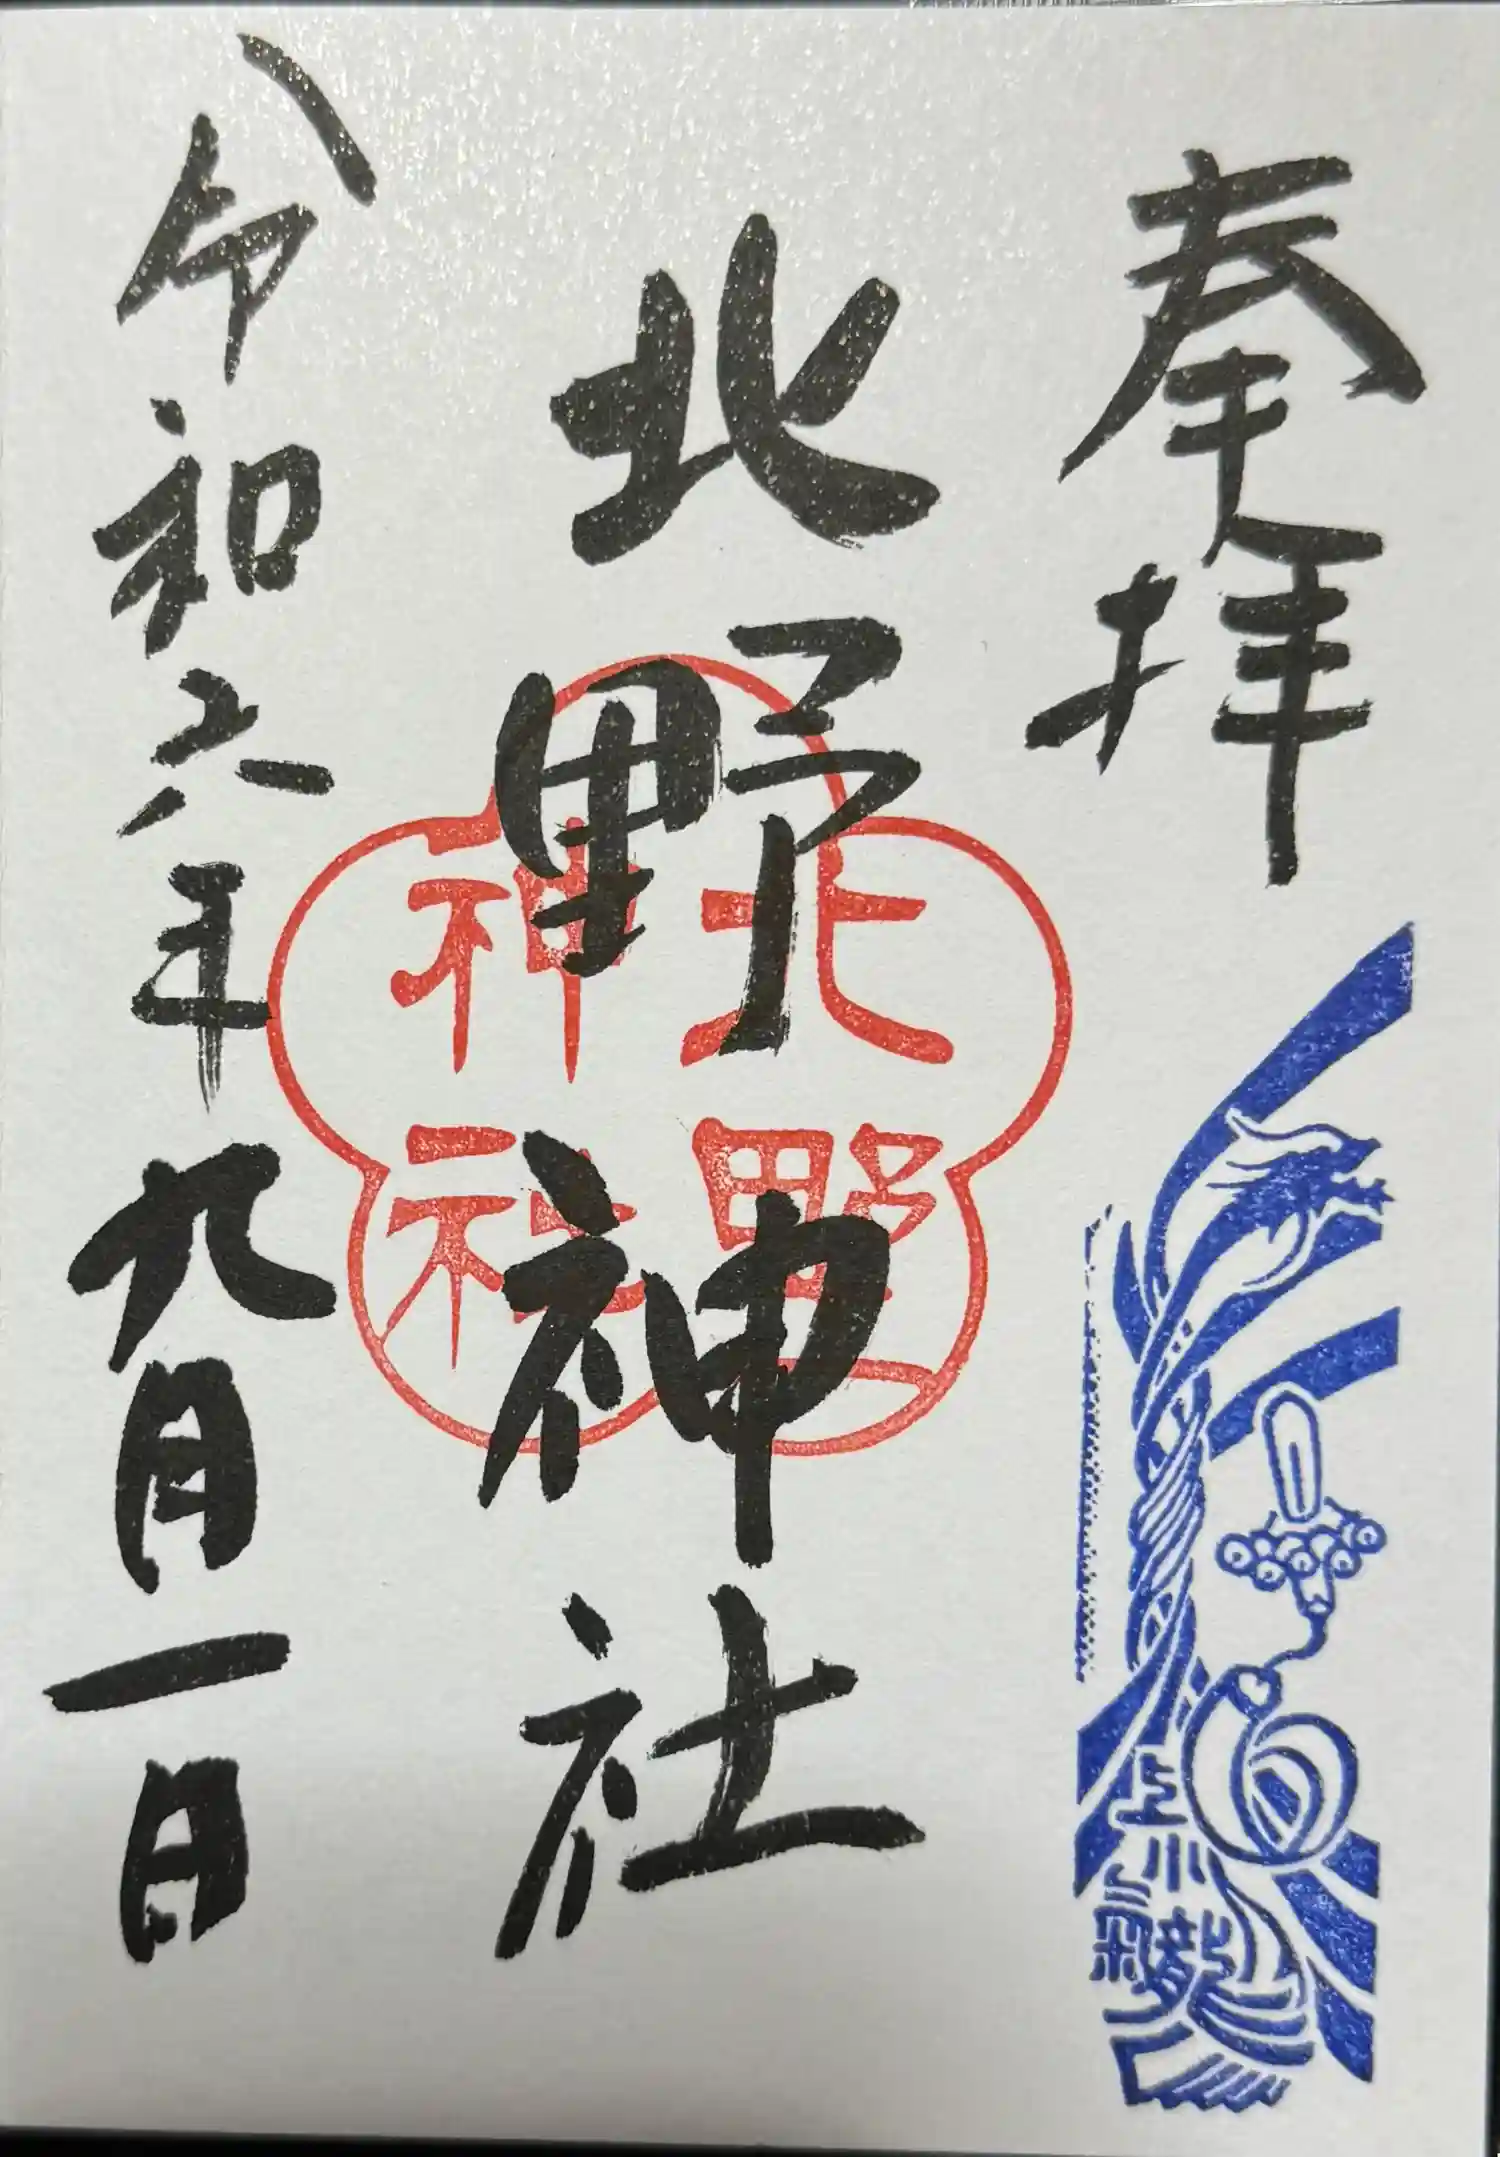 奉拝
北野神社
令和六年九月一日
北野
神社